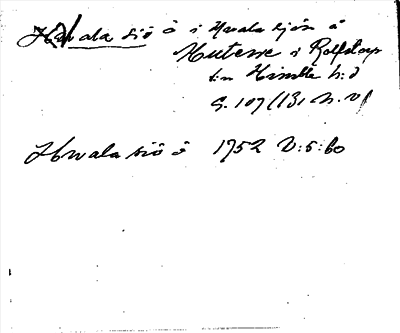 Hwala siö ö i Hwala sjön å
Hutesse i Rolfstorp
sn Himble h:d
S. 107 (131 n. v)
Hwala siö ö 1752 V:5:60